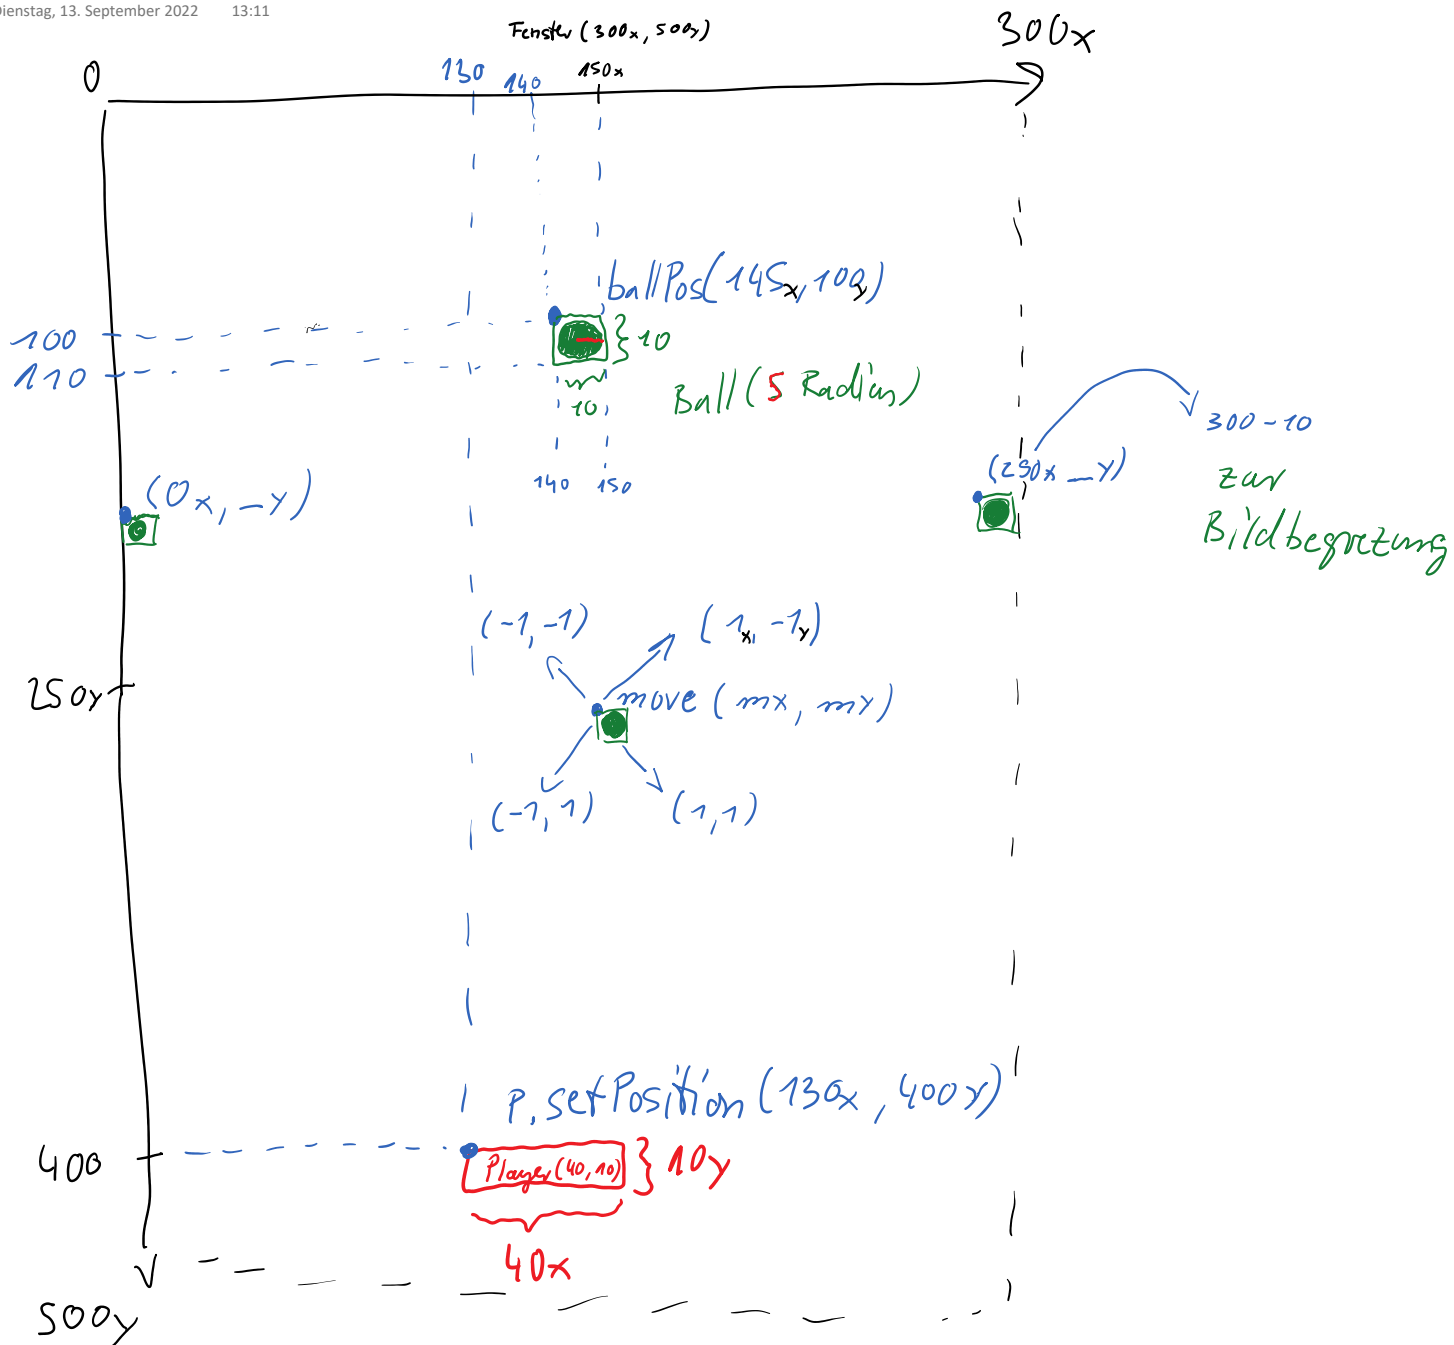 Dienstag, 13. September 2022 13:11
Fenster (300x, 500y)
300x
0
130
140
150x
ballPos(145x, 100y)
100
110
10
Ball (5 Radius)
10
300-10
(290x _ y)
zur
Bildbegretzung
140 150
(0x, _ y)
(-1, -1)
(1x, -1y)
250y
move (mx, my)
(-1, 1)
(1, 1)
P. setPosition (130x, 400y)
400
Player (40, 10)
10y
40x
500y